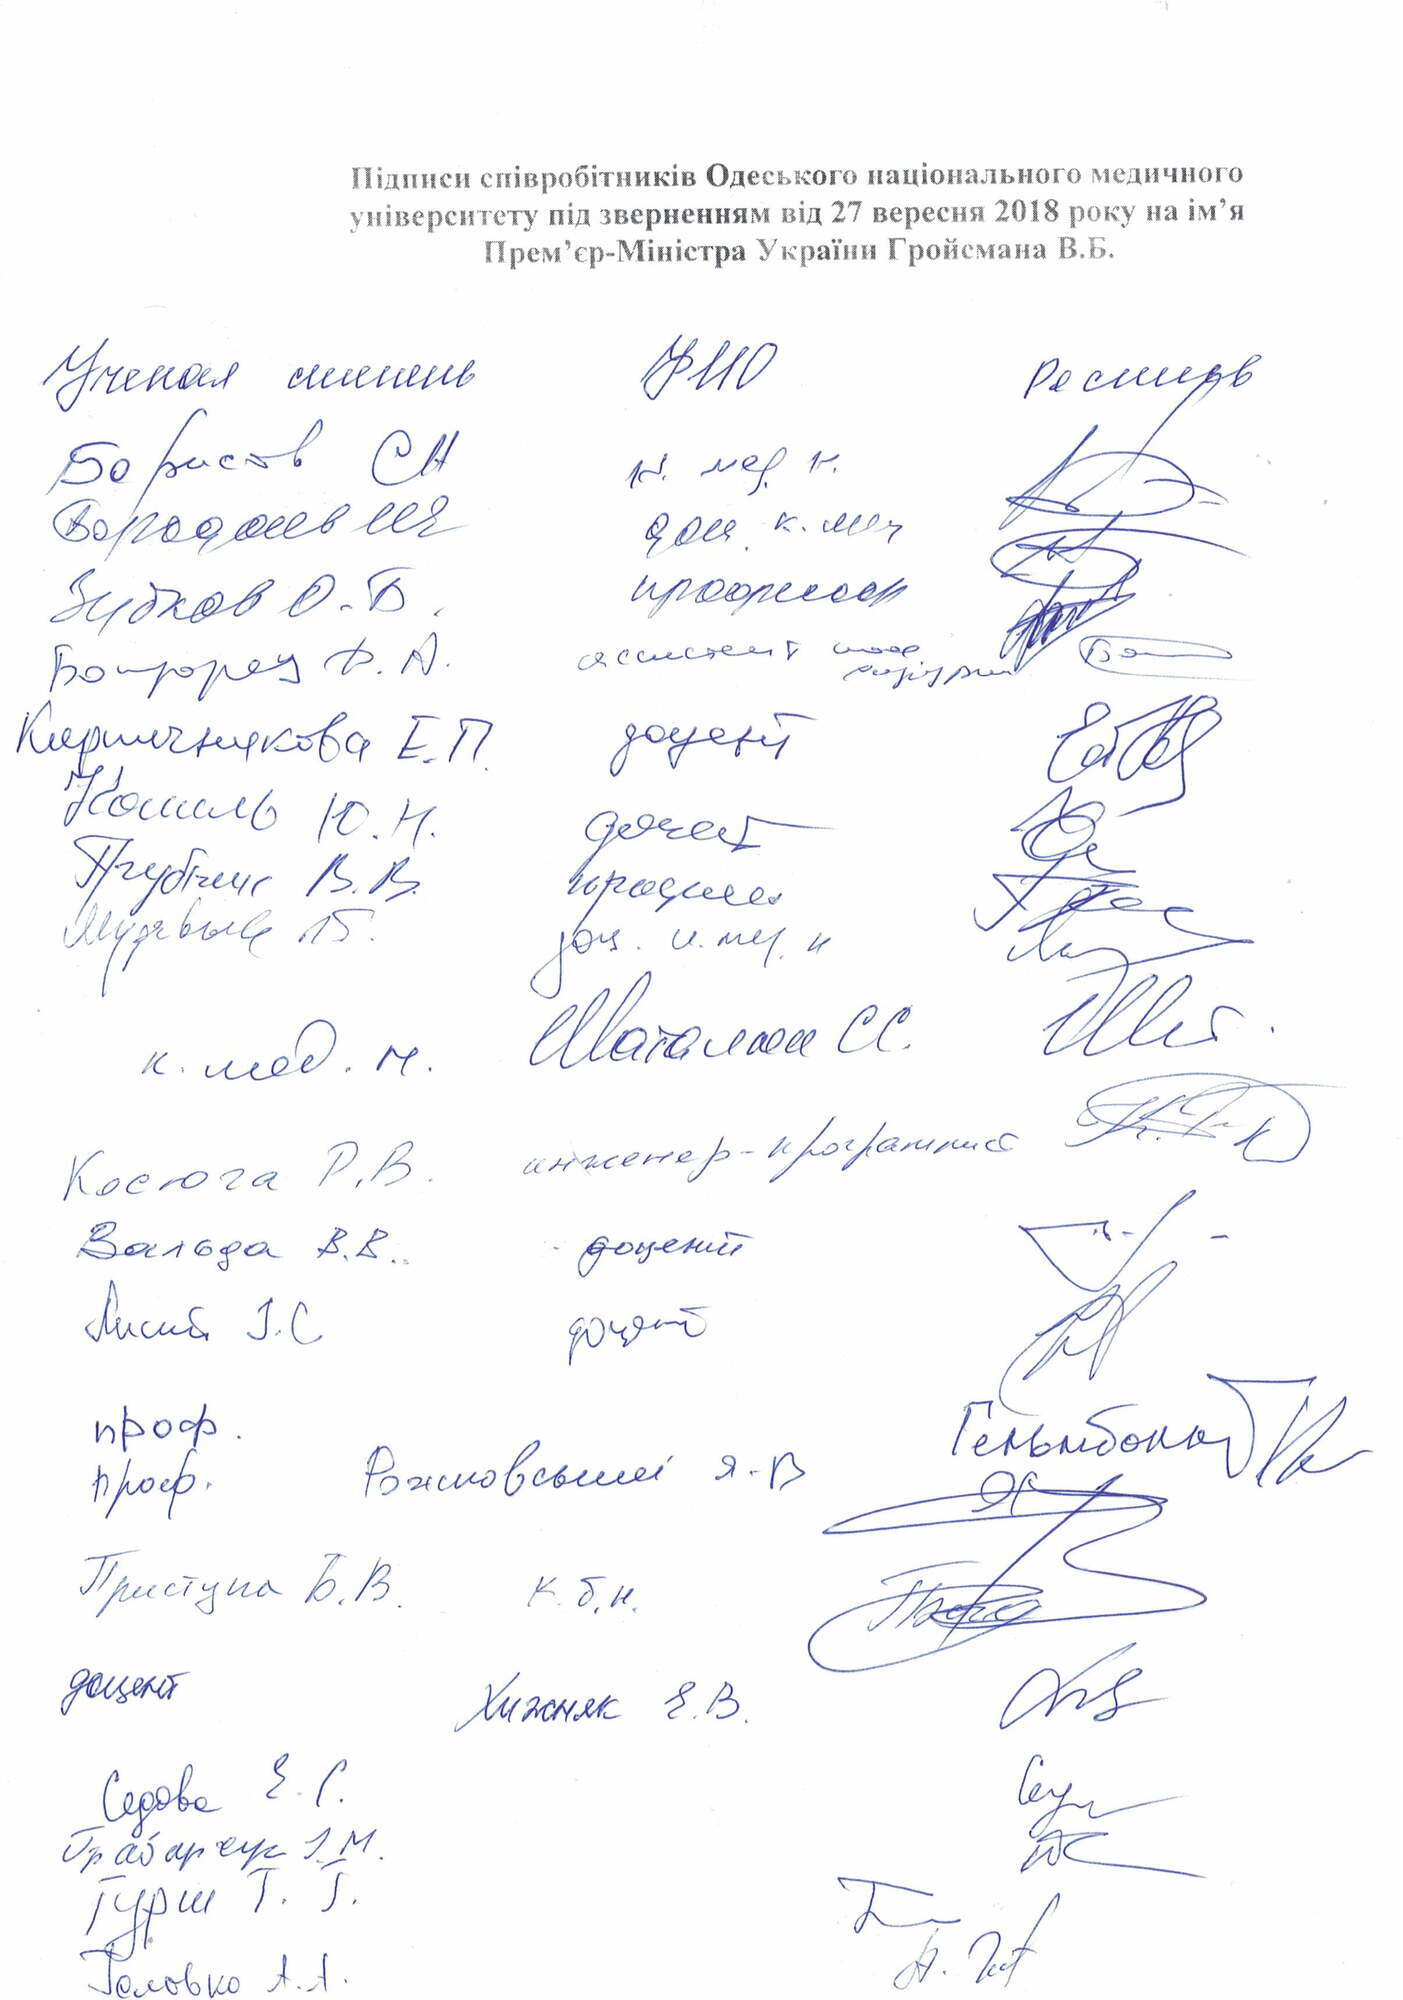 Підписи співробітників Одеського національного медичного
університету під зверненням від 27 вересня 2018 року на ім’я
Прем’єр-Міністра України Гройсмана В.Б.
Ученая степень ФИО Роспись
Борисов СН к. мед. н.
доц. к. мед
Зубков О.Б. профессор
Б.А. ассистент
Кирпичникова Е.П. доцент
Кошель Ю.Н. доцент
В.В.
доц. к. мед. н
к. мед. н. Шаталин С.С.
Костюга Р.В. инженер-программист
Вальда В.В. доцент
Лисий І.С доцент
проф. Гельмбольдт
проф. Рожковський Я.В
Приступа Б.В. к.б.н.
доцент Хижняк Е.В.
Седова Е.С.
Грабарчук І.М.
Гурш Т. Г.
Головко А.А.